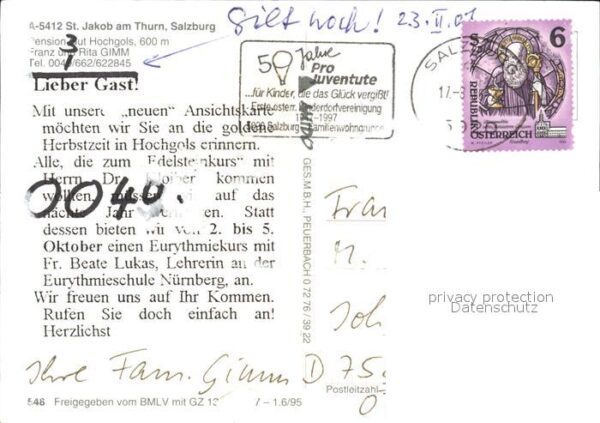 A-5412 St. Jakob am Thurn, Salzburg
Pension Gut Hochgols, 600 m
Franz und Rita GIMM
Tel. 0049/662/622845
3
Gilt noch! 23.II.01
50 Jahre
Pro
Juventute
...für Kinder, die das Glück vergißt!
Erste österr. Kinderdorfvereinigung
1997
Salzburg Familienwohngruppe
SALZ
6
REPUBLIK
ÖSTERREICH
Lieber Gast!
Mit unserer „neuen" Ansichtskarte
möchten wir Sie an die goldene
Herbstzeit in Hochgols erinnern.
Alle, die zum „Edelsteinkurs" mit
Herrn Dr. Kloiber kommen
wollten, müssen wir auf das
nächte Jahr vertrösten. Statt
dessen bieten wir von 2. bis 5.
Oktober einen Eurythmiekurs mit
Fr. Beate Lukas, Lehrerin an der
Eurythmieschule Nürnberg, an.
Wir freuen uns auf Ihr Kommen.
Rufen Sie doch einfach an!
Herzlichst
0040.
Ihre Fam. Gimm
GES.M.B.H., PEUERBACH 0 72 76 / 39 22
Frau
M.
Joh
D 75
Postleitzahl
privacy protection
Datenschutz
546 Freigegeben vom BMLV mit GZ 13 / – 1.6/95